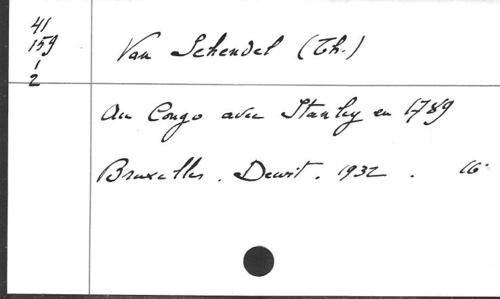 41
159
1
2
Van Schendel (Th.)
Au Congo avec Stanley en 1789
Bruxelles. Dewit. 1932. 16°